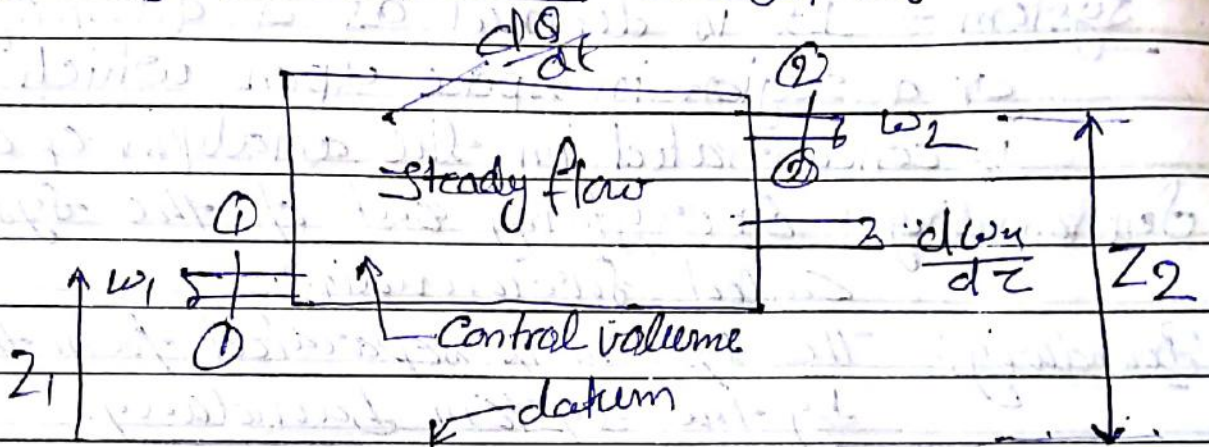 dQ/dt
②
w2
②
Steady flow
①
dwx/dτ
Z2
w1
①
Control volume
Z1
datum